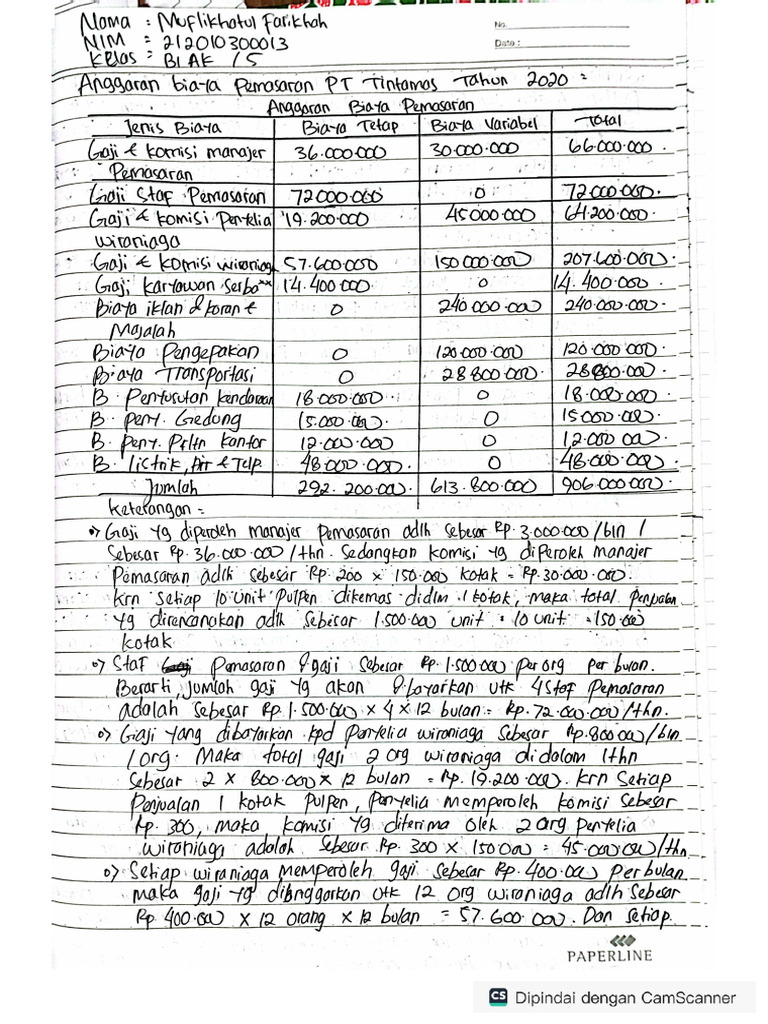 Nama : Muflikhatul Farikhah
No.
NIM = 212010300013
Date :
Kelas = B1 AK / 5
Anggaran biaya pemasaran PT Tintamas Tahun 2020 :
Anggaran Biaya Pemasaran
Jenis Biaya Biaya Tetap Biaya Variabel Total
Gaji & komisi manajer 36.000.000 30.000.000 66.000.000
Pemasaran
Gaji Staf Pemasaran 72.000.000 0 72.000.000
Gaji & komisi Penyelia 19.200.000 45.000.000 64.200.000
wiraniaga
Gaji & komisi wiraniaga 57.600.000 150.000.000 207.600.000
Gaji karyawan Serba** 14.400.000 0 14.400.000
Biaya iklan d koran & 0 240.000.000 240.000.000
Majalah
Biaya Pengepakan 0 120.000.000 120.000.000
Biaya Transportasi 0 28.800.000 28.800.000
B. Penyusutan kendaraan 18.000.000 0 18.000.000
B. peny. Gedung 15.000.000 0 15.000.000
B. peny. Prltn kantor 12.000.000 0 12.000.000
B. listrik, Air & Telp. 48.000.000 0 48.000.000
Jumlah 292.200.000 613.800.000 906.000.000
keterangan =
=> Gaji yg diperoleh manajer pemasaran adlh sebesar Rp. 3.000.000 / bln /
Sebesar Rp. 36.000.000 / thn. Sedangkan komisi yg diperoleh manajer
Pemasaran adlh sebesar Rp. 200 x 150.000 kotak = Rp. 30.000.000.
krn setiap 10 unit pulpen dikemas didlm 1 kotak, maka total penjualan
yg direncanakan adlh sebesar 1.500.000 unit : 10 unit = 150.000
kotak
=> Staf Pemasaran d gaji sebesar Rp. 1.500.000 per org per bulan.
Berarti, jumlah gaji yg akan dbayarkan utk 4 Staf pemasaran
adalah sebesar Rp. 1.500.000 x 4 x 12 bulan = Rp. 72.000.000 /thn.
=> Gaji yang dibayarkan kpd penyelia wiraniaga sebesar Rp. 800.000/bln
/org. Maka total gaji 2 org wiraniaga didalam 1thn
Sebesar 2 x 800.000 x 12 bulan = Rp. 19.200.000. krn setiap
Penjualan 1 kotak pulpen, penyelia memperoleh komisi sebesar
Rp. 300, maka komisi yg diterima oleh 2 org penyelia
wiraniaga adalah sebesar Rp. 300 x 150.000 = 45.000.000/thn
=> Setiap wiraniaga memperoleh gaji sebesar Rp. 400.000 per bulan
maka gaji yg dianggarkan utk 12 org wiraniaga adlh sebesar
Rp. 400.000 x 12 orang x 12 bulan = 57.600.000. Dan setiap
PAPERLINE
CS Dipindai dengan CamScanner